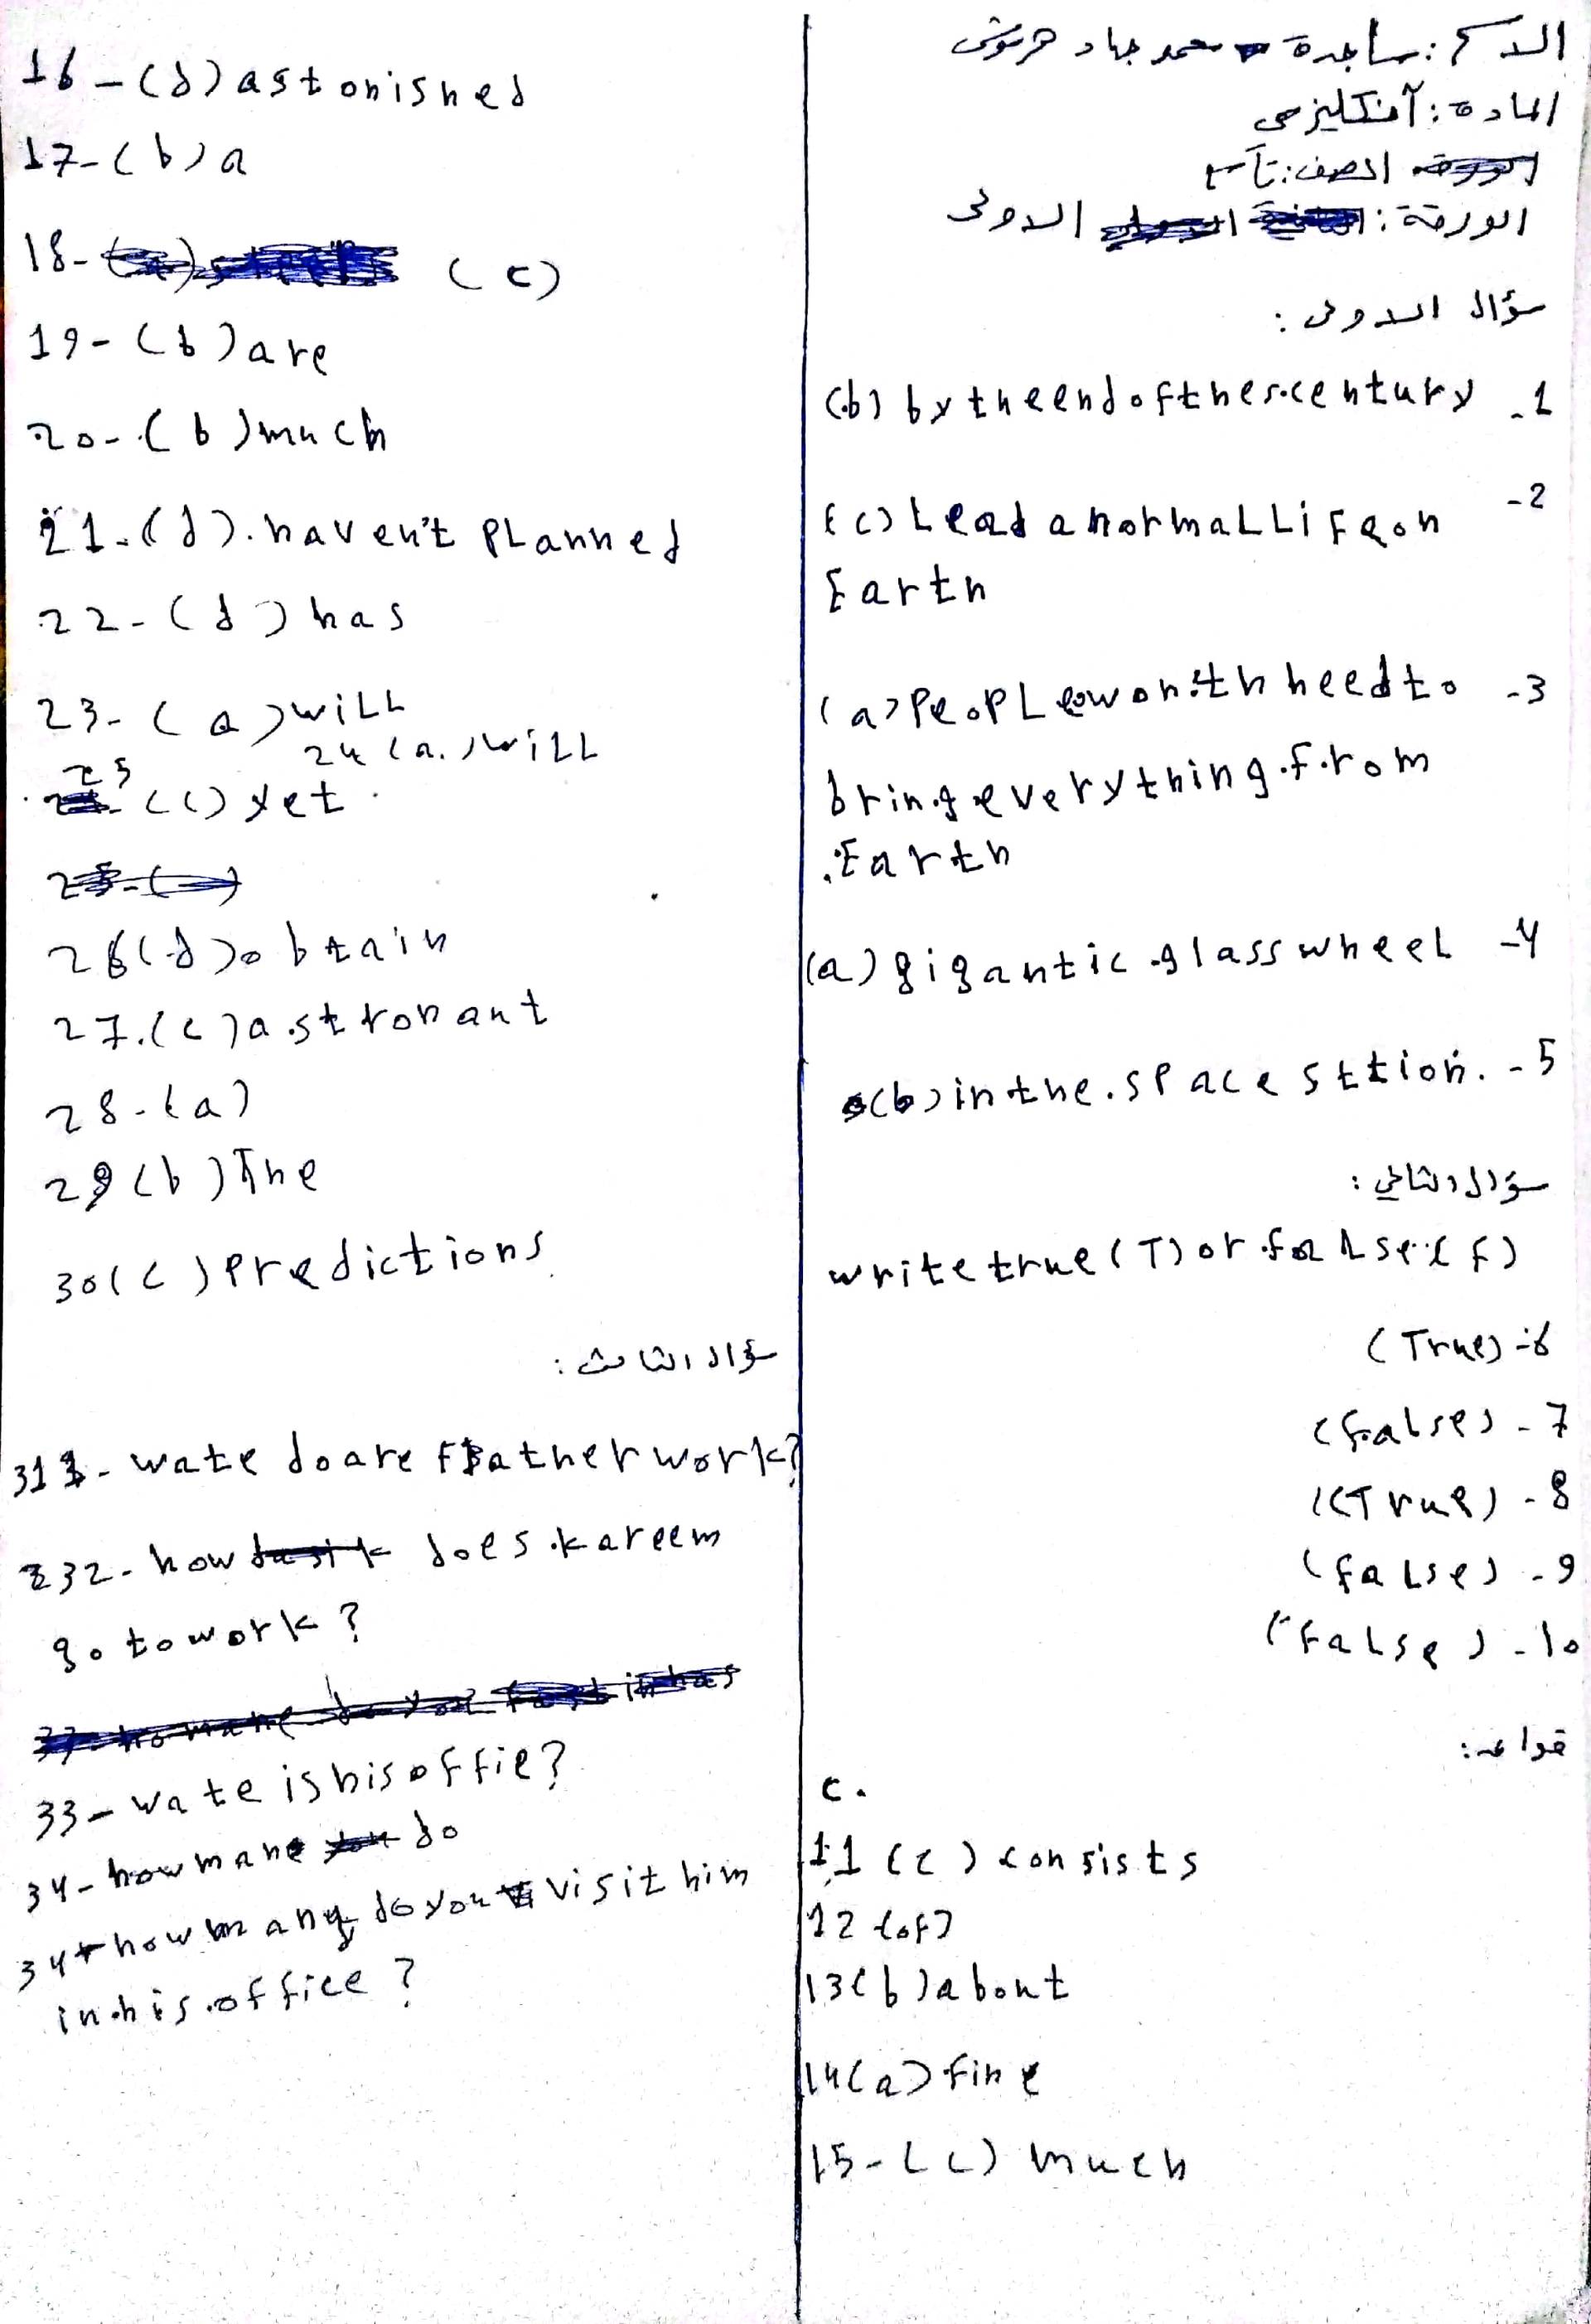 الاسم: ساجدة محمد جهاد هرموش
المادة: آنكليزي
الصف: تاسع
الورقة: الاولى
سؤال الاولى:
(b) by the end of the s.century -1
(c) Lead a normaL Life on -2
Earth
(a) PeopLe won'th need to -3
bring everything from
Earth
(a) gigantic glass wheeL -4
(b) in the space sttion. -5
سؤال الثاني:
write true (T) or faLse (F)
(True) -6
(false) -7
(True) -8
(faLse) -9
(FaLse) -10
قواعد:
c.
11 (c) consists
12 (of)
13 (b) about
14 (a) fine
15- (c) much
16 - (d) astonished
17- (b) a
18- (c)
19- (b) are
20- (b) much
21- (d). haven't PLanned
22- (d) has
23- (a) wiLL
24 (a.) wiLL
25 (c) yet.
26 (d) obtain
27. (c) astronant
28- (a)
29 (b) The
30 (c) Predictions
سؤال الثالث:
31- wate do are Father work?
32- how does kareem
go to work?
33- wate is his offie?
34- how mane do
34 how many do you visit him
in his office?